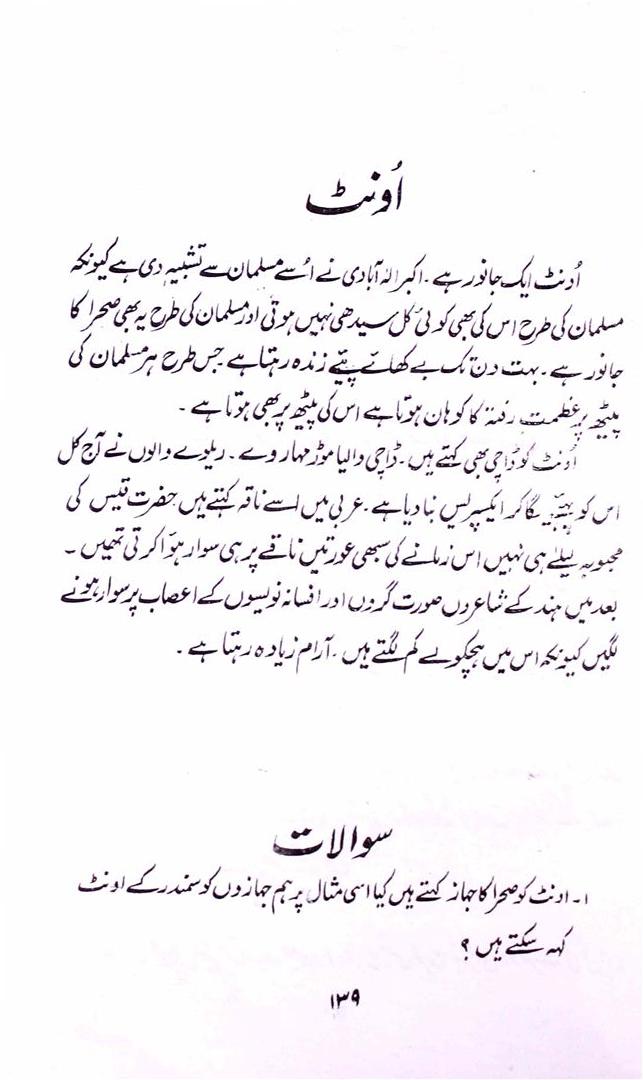 اُونٹ
اُونٹ ایک جانور ہے ۔ اکبر الٰہ آبادی نے اُسے مسلمان سے تشبیہہ دی ہے کیونکہ
مسلمان کی طرح اس کی بھی کوئی کل سیدھی نہیں ہوتی اور مسلمان کی طرح یہ بھی صحرا کا
جانور ہے ۔ بہت دن تک بے کھائے پئے زندہ رہتا ہے جس طرح ہر مسلمان کی
پیٹھ پر عظمت رفتہ کا کوہان ہوتا ہے اس کی پیٹھ پر بھی ہوتا ہے ۔
اُونٹ کو ڈاچی بھی کہتے ہیں ۔ ڈاچی والیا موڑ مہار وے ۔ ریلوے والوں نے آج کل
اس کو پہیے لگا کر ایکسپریس بنا دیا ہے ۔ عربی میں اسے ناقہ کہتے ہیں حضرت قیس کی
محبوبہ لیلےٰ ہی نہیں اس زمانے کی سبھی عورتیں ناقے پر ہی سوار ہوا کرتی تھیں ۔
بعد میں ہند کے شاعروں صورت گروں اور افسانہ نویسوں کے اعصاب پر سوار ہونے
لگیں کیونکہ اس میں ہچکولے کم لگتے ہیں ۔ آرام زیادہ رہتا ہے ۔
سوالات
۱ ۔ اونٹ کو صحرا کا جہاز کہتے ہیں کیا اسی مثال پر ہم جہازوں کو سمندر کے اونٹ
کہہ سکتے ہیں ؟
۱۳۹